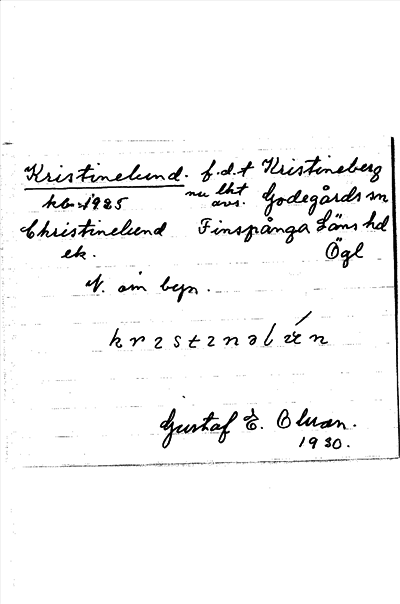 Kristinelund. f.d.t Kristineberg
kb. 1925 nu lht avs. Godegårds sn
Christinelund Finspånga Läns hd
ek. Ögl
N. om byn.
Gustaf E.
1930.